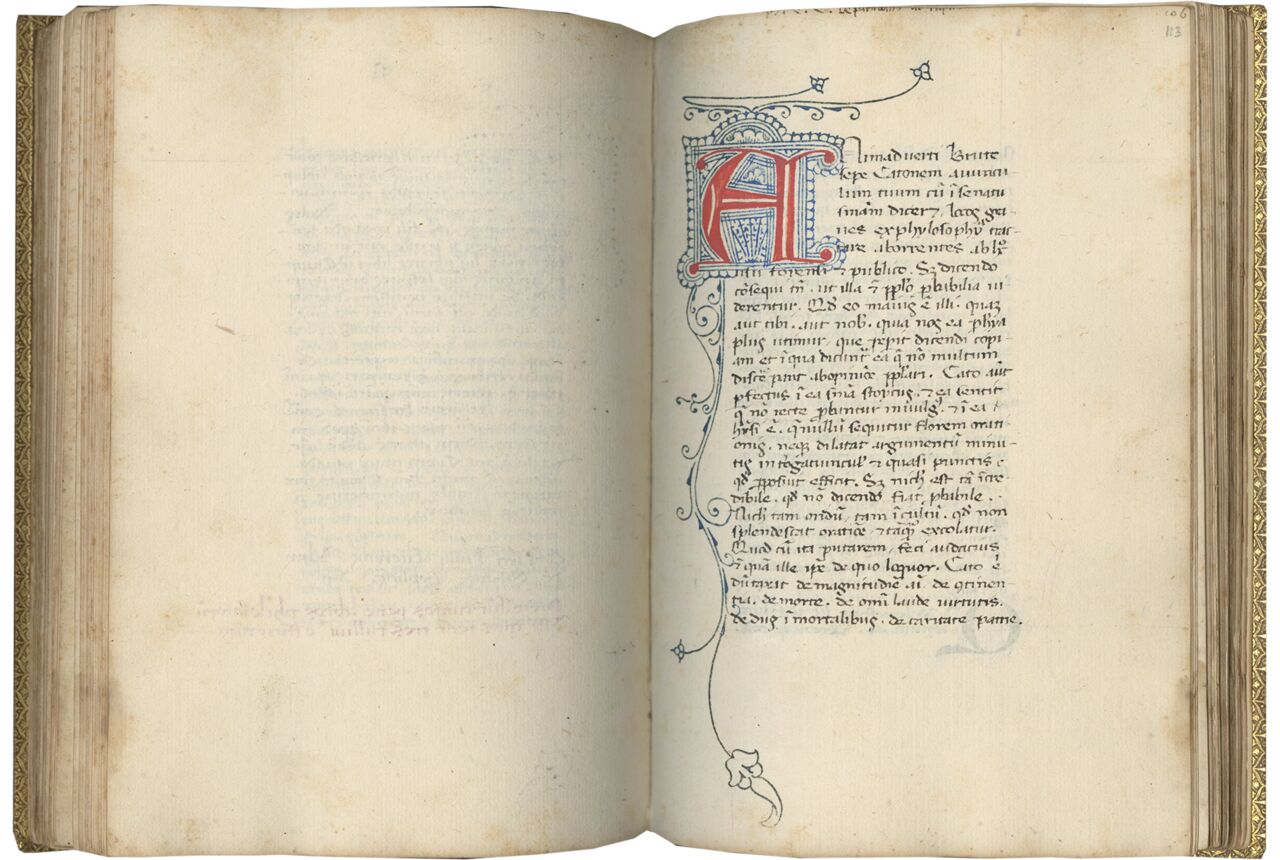 106
113
Animadverti Brute
sepe Catonem avuncu-
lum tuum cũ ĩ senatu
smãm diceret, locos gra-
ves ex phylosophya trac-
tare aborrentes ab h
usu forensi & publico. Sz dicendo
cõsequi tñ. ut illa & pplo pbabilia vi
derentur. Qd eo maius ẽ illi. quaz
aut tibi. aut nob. quia nos ea phya
plus utimur, que pepit dicendi copi-
am et ĩ qua dicunt ea q nõ multum
discrepant ab opinioe pplari. Cato aut
pfectus ĩ ea snia stoycus. & ea sentit
q nõ recte pbantur in vulg. & ĩ ea
hsi ẽ. q nullũ sequitur florem orati-
onis. neqz dilatat argumentũ minu-
tis introgatiuncul & quasi punctis
qd pposuit efficit. Sz nich est tã ĩcre-
dibile. qd nõ dicendo fiat pbabile.
Nich tam oridũ, tam ĩcultũ. qd non
splendescat oratioe & taq excolatur.
Quod cũ ita putarem, feci audacius
& quã ille ipe de quo loquor. Cato ẽ
dũtaxat de magnitudie ai. de 9tinen-
tia. de morte. de omi laude virtutis.
de diis ĩmortalibus. de caritate patrie.